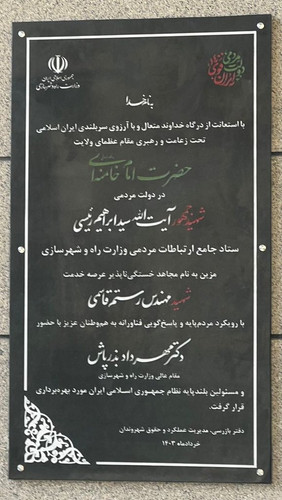 جمهوری اسلامی ایران
وزارت راه و شهرسازی
دولت مردمی
ایران قوی
بنام خدا
با استعانت از درگاه خداوند متعال و با آرزوی سربلندی ایران اسلامی
تحت زعامت و رهبری مقام عظمای ولایت
حضرت امام خامنه‌ای
در دولت مردمی
شهید جمهور آیت الله سید ابراهیم رئیسی
ستاد جامع ارتباطات مردمی وزارت راه و شهرسازی
مزین به نام مجاهد خستگی‌ناپذیر عرصه خدمت
شهید مهندس رستم قاسمی
با رویکرد مردم‌پایه و پاسخ‌گویی فناورانه به هم‌وطنان عزیز با حضور
دکتر مهرداد بذرپاش
مقام عالی وزارت راه و شهرسازی
و مسئولین بلندپایه نظام جمهوری اسلامی ایران مورد بهره‌برداری
قرار گرفت.
دفتر بازرسی، مدیریت عملکرد و حقوق شهروندان
خردادماه ۱۴۰۳